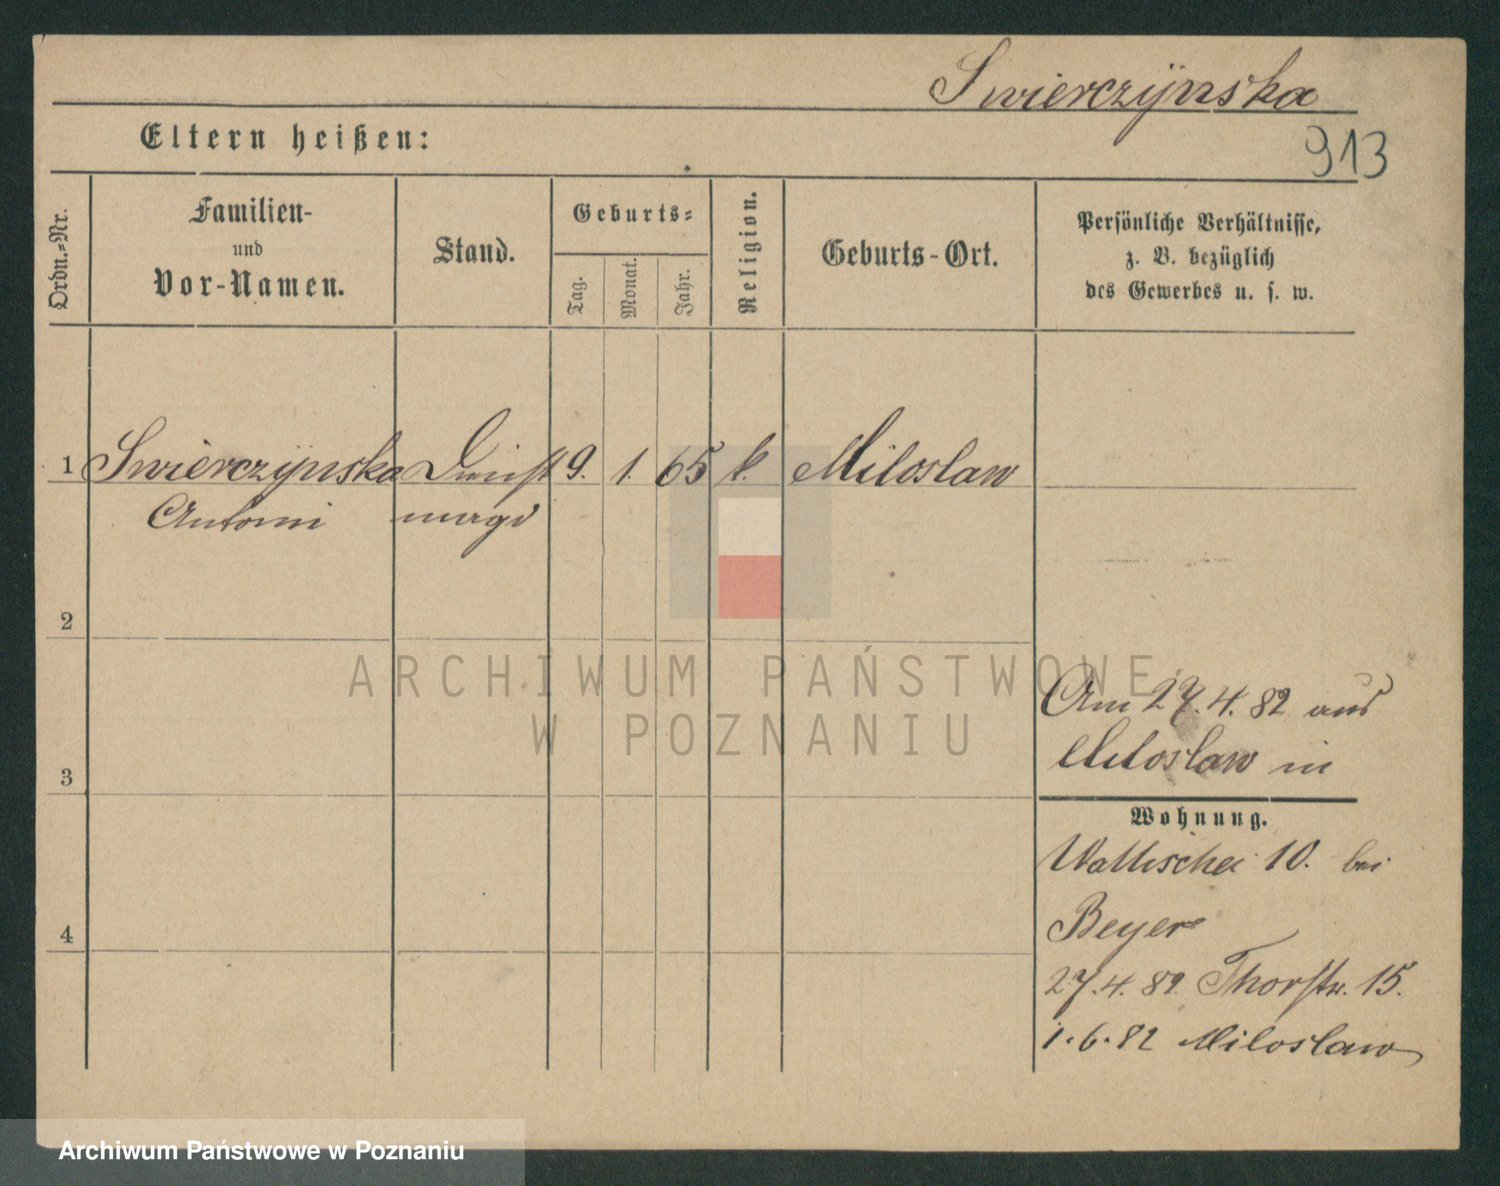 Swierczÿnska
913
Eltern heißen:
Ordn.-Nr.
Familien-
und
Vor-Namen.
Stand.
Geburts-
Tag.
Monat.
Jahr.
Religion.
Geburts-Ort.
Persönliche Verhältnisse,
z. B. bezüglich
des Gewerbes u. s. w.
1 Swierczÿnska Dienst 9. 1. 65 k. Miloslaw
Antoni magd
2
3
4
Am 27.4.82 aus
Miloslaw in
Wohnung.
Wallischei 10. bei
Beyer
27.4.82 Thorstr. 15.
1.6.82 Miloslaw
ARCHIWUM PAŃSTWOWE
W POZNANIU
Archiwum Państwowe w Poznaniu